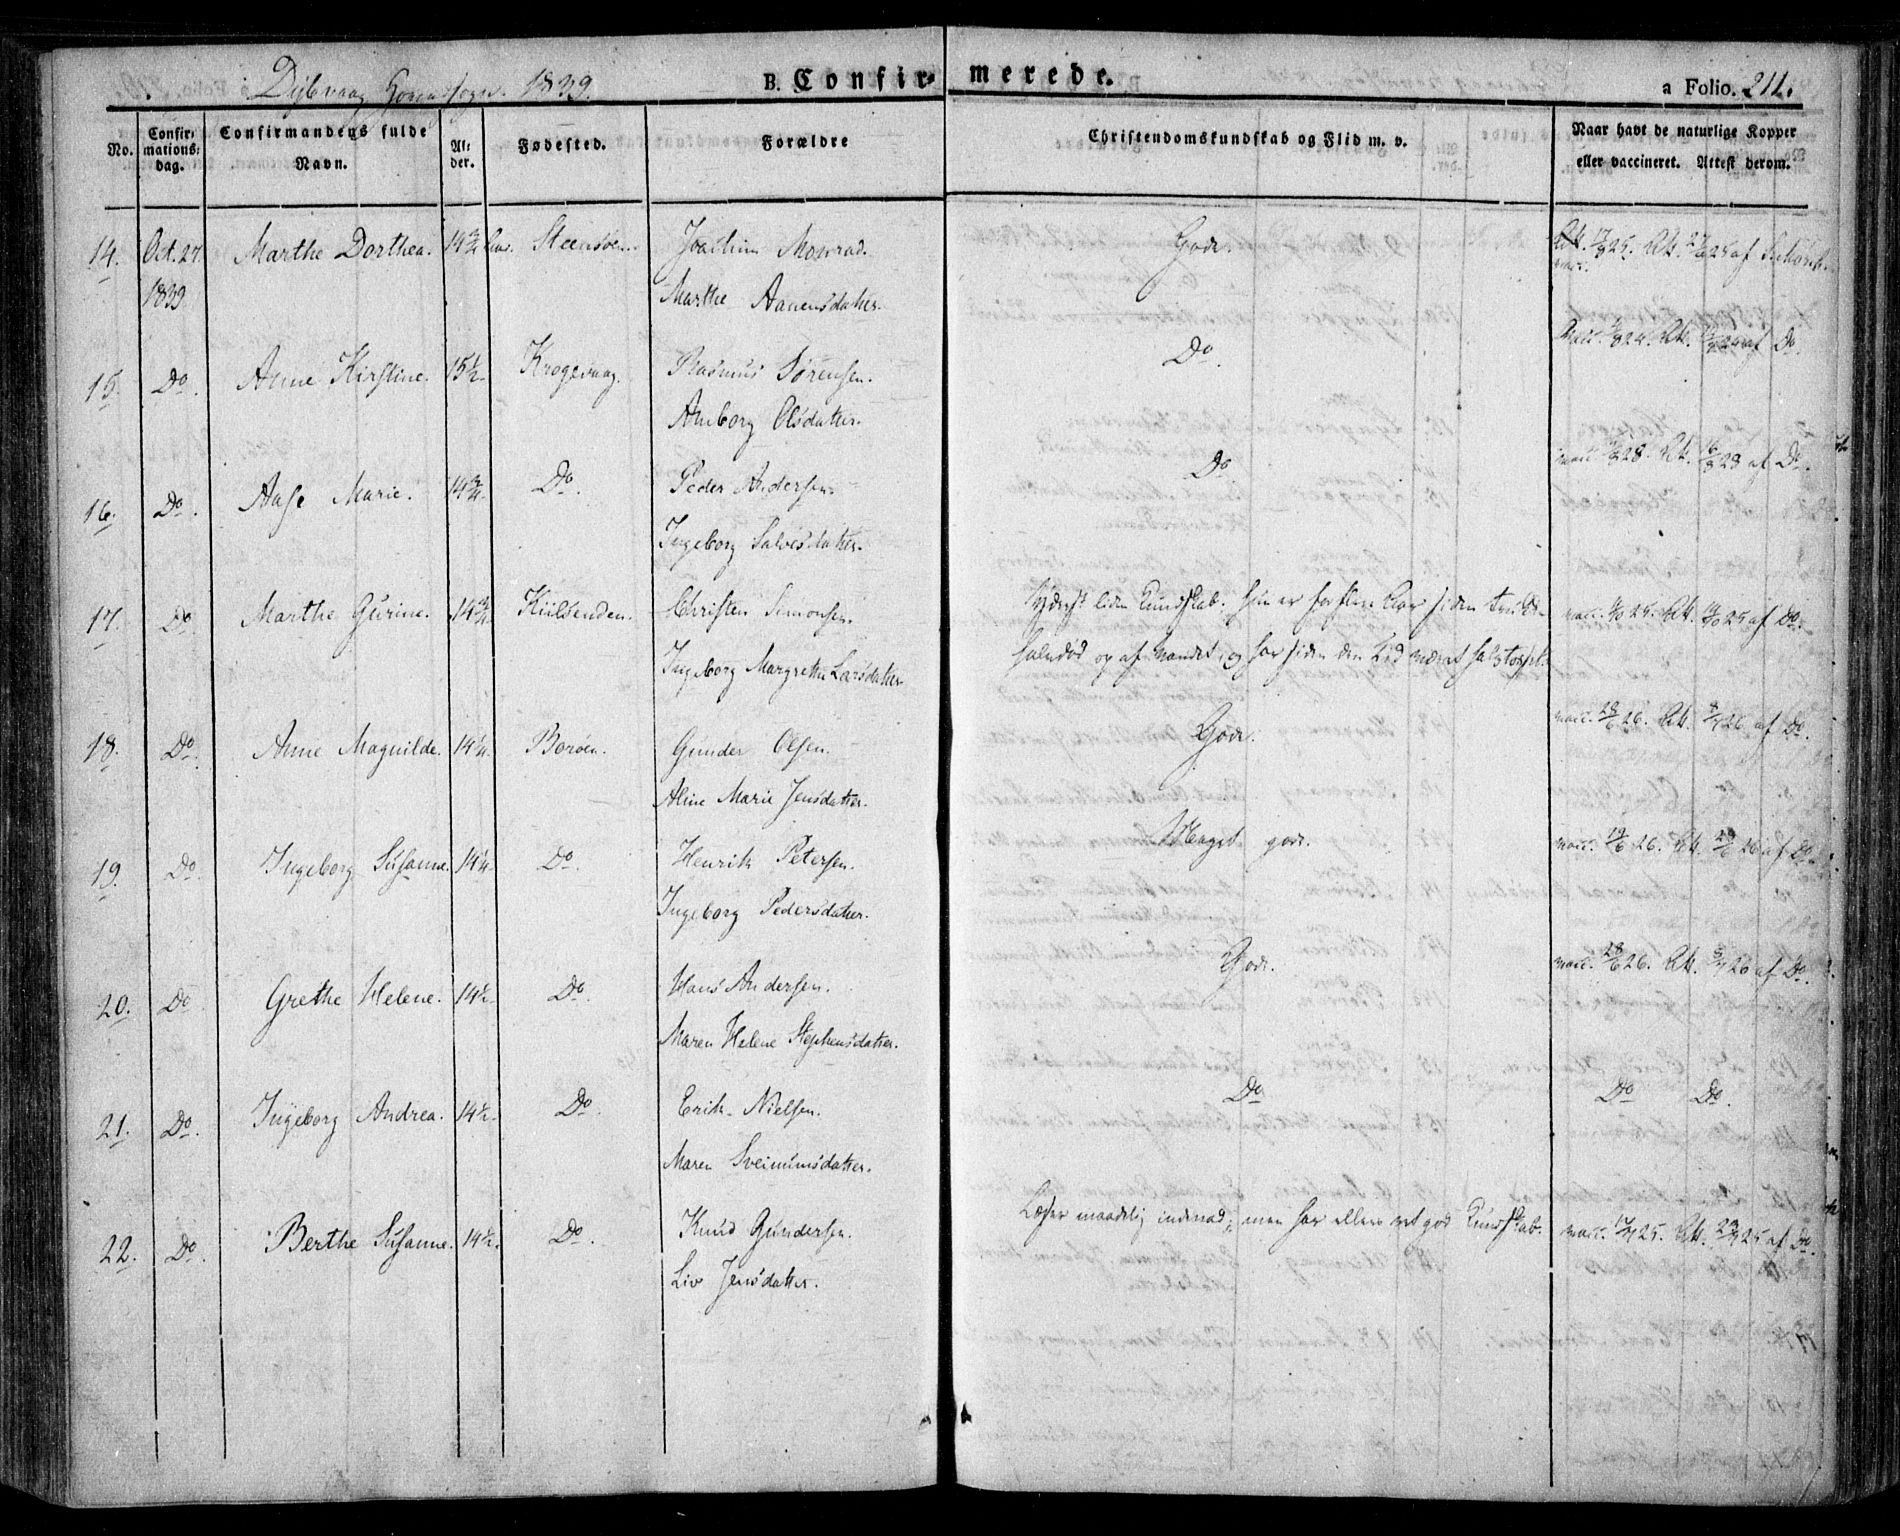 Dybvaag Hovedsogn. 1839. B. Confirmerede. a Folio. 211.
No. Confirmationsdag. Confirmandens fulde Navn. Alder. Fødested. Forældre Christendomskundskab og Flid m. v. Naar havt de naturlige Kopper eller vaccineret. Attest derom.
14. Oct. 27 1839 Marthe Dorthea. 14 3/4 Steensøen. Joachim Monrad. Godt. 25. 25 af
Marthe Aanensdatter.
15. Do. Anne Kirstine. 15 1/2 Krogevaag. Rasmus Sørensen. Do. vacc. 24. Att. 24 af Do.
Anborg Olsdatter.
16. Do. Aase Marie. 14 3/4 Do. Peder Andersen. Do. vacc. 28. Att. 16/8 28 af Do.
Ingeborg Salvesdatter.
17. Do. Marthe Gurine. 14 3/4 Kiilsenden. Christen Simonsen. Yderst liden Kundskab. Hun er for flere Aar siden vacc. 25. Att. 25 af Do.
Ingeborg Margrethe Larsdatter. halvdød op af Vandet, og har siden den Tid været
18. Do. Anne Magnilde. 14 1/4 Borøen. Gunder Olsen. Godt. vacc. 28/6 26. Att. 26 af Do.
Aline Marie Jensdatter.
19. Do. Ingeborg Susanne. 14 1/4 Do. Henrik Petersen. Meget godt. vacc. 19/6 26. Att. 29/6 26 af Do.
Ingeborg Pedersdatter.
20. Do. Grethe Helene. 14 1/2 Do. Hans Andersen. Godt. vacc. 28/6 26. Att. 26 af Do.
Maren Helene Stephensdatter.
21. Do. Ingeborg Andrea. 14 1/2 Do. Erik Nielsen. Do. Do Do.
Maren Sveinumsdatter.
22. Do. Berthe Susanne. 14 1/2 Do. Knud Gundersen. Læser maadelig indenad; men har ellers ret god Kundskab. vacc. 25. Att. 25 af Do.
Liv Jensdatter.